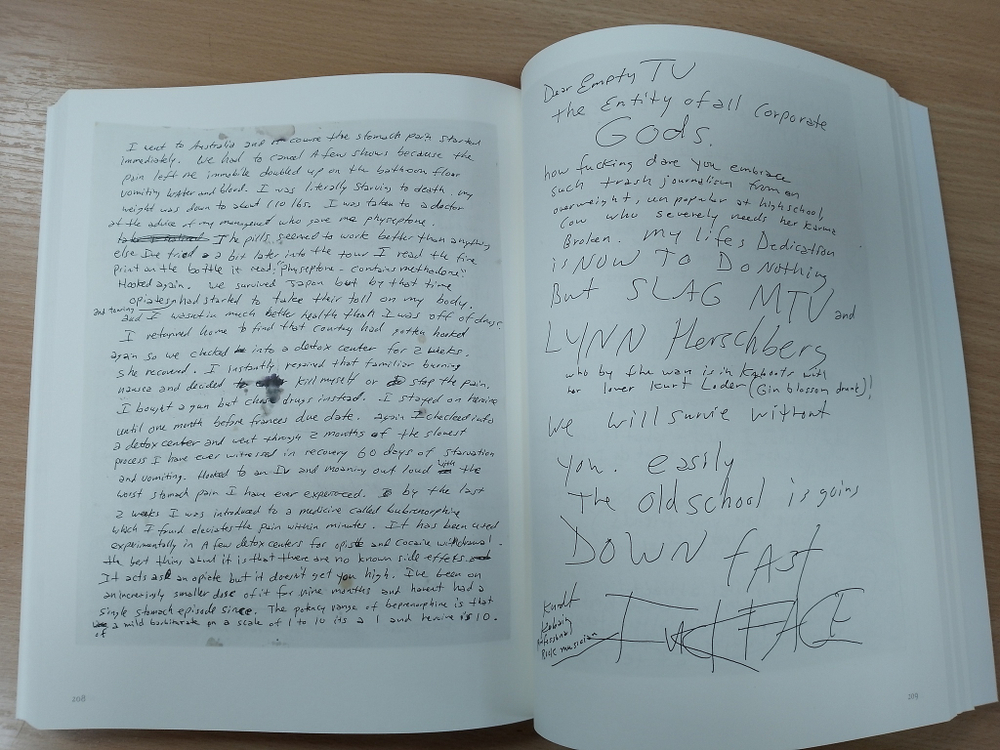 I went to Australia and of course the stomach pain started
immediately. We had to cancel A few shows because the
pain left me immobile doubled up on the bathroom floor
vomiting water and blood. I was literally starving to death. my
weight was down to about 110 lbs. I was taken to a doctor
at the advice of my managment who gave me physeptone.
The pills seemed to work better than anything
else I've tried a bit later into the tour I read the fine
print on the bottle it read: "Physeptone - contains methodone"
Hooked again. We survived Japan but by that time
opiates and touring had started to take their toll on my body.
and I wasnt in much better health than I was off of drugs.
I returned home to find that Courtney had gotten hooked
again so we checked into a detox center for 2 weeks.
she recovered. I instantly regained that familiar burning
nausea and decided to kill myself or stop the pain.
I bought a gun but chose drugs instead. I stayed on heroine
until one month before frances due date. again I checked into
a detox center and went through 2 months of the slowest
process I have ever witnessed in recovery 60 days of starvation
and vomiting. Hooked to an IV and moaning out loud with the
worst stomach pain I have ever experienced. by the last
2 weeks I was introduced to a medicine called bubrenorphine
which I fouid eleviates the pain within minutes. It has been used
experimentally in A few detox centers for opiate and Cocaine withdrawal.
the best thing about it is that there are no known side effets.
It acts as an opiete but it doesn't get you high. I've been on
an increasingly smaller dose of it for nine months and havent had a
single stomach episode since. The potency range of beprenorphine is that
of a mild barbiturate on a scale of 1 to 10 its a 1 and heroine is 10.
208
Dear Empty TV
the Entity of all Corporate
Gods.
how fucking dare you embrace
such trash journalism from an
overweight, un popular at highschool,
Cow who severely needs her karma
Broken. My lifes Dedication
is NOW TO Do Nothing
But SLAG MTV and
LYNN Herschberg
who by the way is in Kahoots with
her lover Kurt Loder (Gin blossom drunk)!
We will survive without
you. easily
The oldschool is going
DOWN fAST
Kurdt
Kobain
Professional
Rock musician
FUCK FACE
209